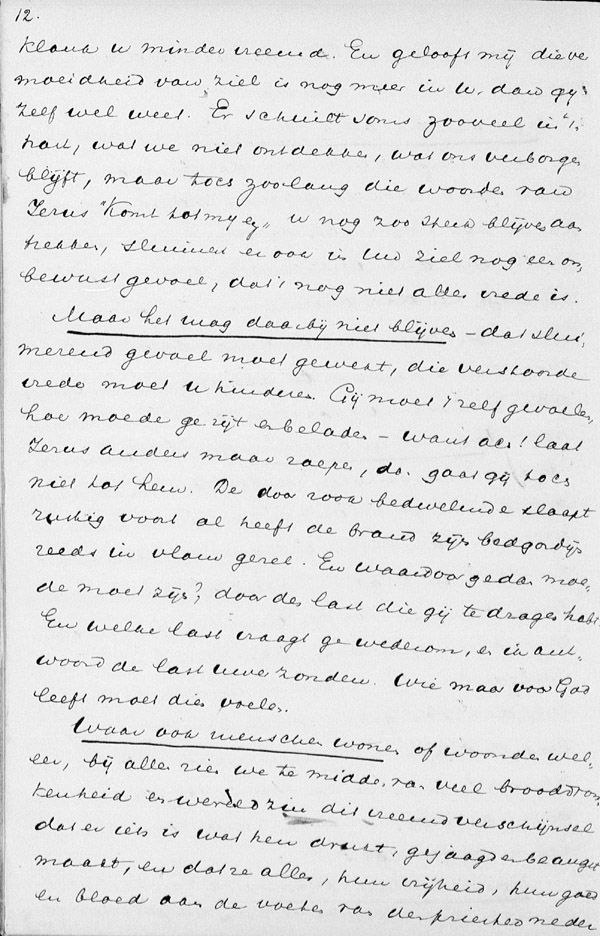 12.
klank u minder vreemd. En gelooft mij die ve
moeidheid van ziel is nog meer in U, dan gij
zelf wel weet. Er schuilt soms zooveel in 't
hart, wat we niet ontdekken, wat ons verborgen
blijft, maar toch zoolang die woorden van
Jezus "Komt tot mij enz" u nog zoo sterk blijven aan
trekken, sluimert er ook in Uw ziel nog een on,
bewust gevoel, dat 't nog niet alles vrede is.
Maar het mag daarbij niet blijven - dat slui,
merend gevoel moet gewekt, die verstoorde
vrede moet u hinderen. Gij moet 't zelf gevoelen,
hoe moede ge zijt en beladen - want ach! laat
Jezus anders maar roepen, dan gaat gij toch
niet tot hem. De door rook bedwelmde slaapt
rustig voort al heeft de brand zijn bedgordijn
reeds in vlam gezet. En waardoor ge dan moe,
de moet zijn? door den last die gij te dragen hebt.
En welke last vraagt ge wederom, en ik ant,
woord de last uwer zonden. Wie maar voor God
leeft moet dien voelen.
Waar ook menschen wonen of woonden wel,
eer, bij allen zien we te midden van veel brooddron
kenheid en wereldzin dit vreemd verschijnsel
dat er iets is wat hen drukt, gejaagd en beangst
maakt, en dat ze alles, hun vrijheid, hun goed
en bloed aan de voeten van den priester neder